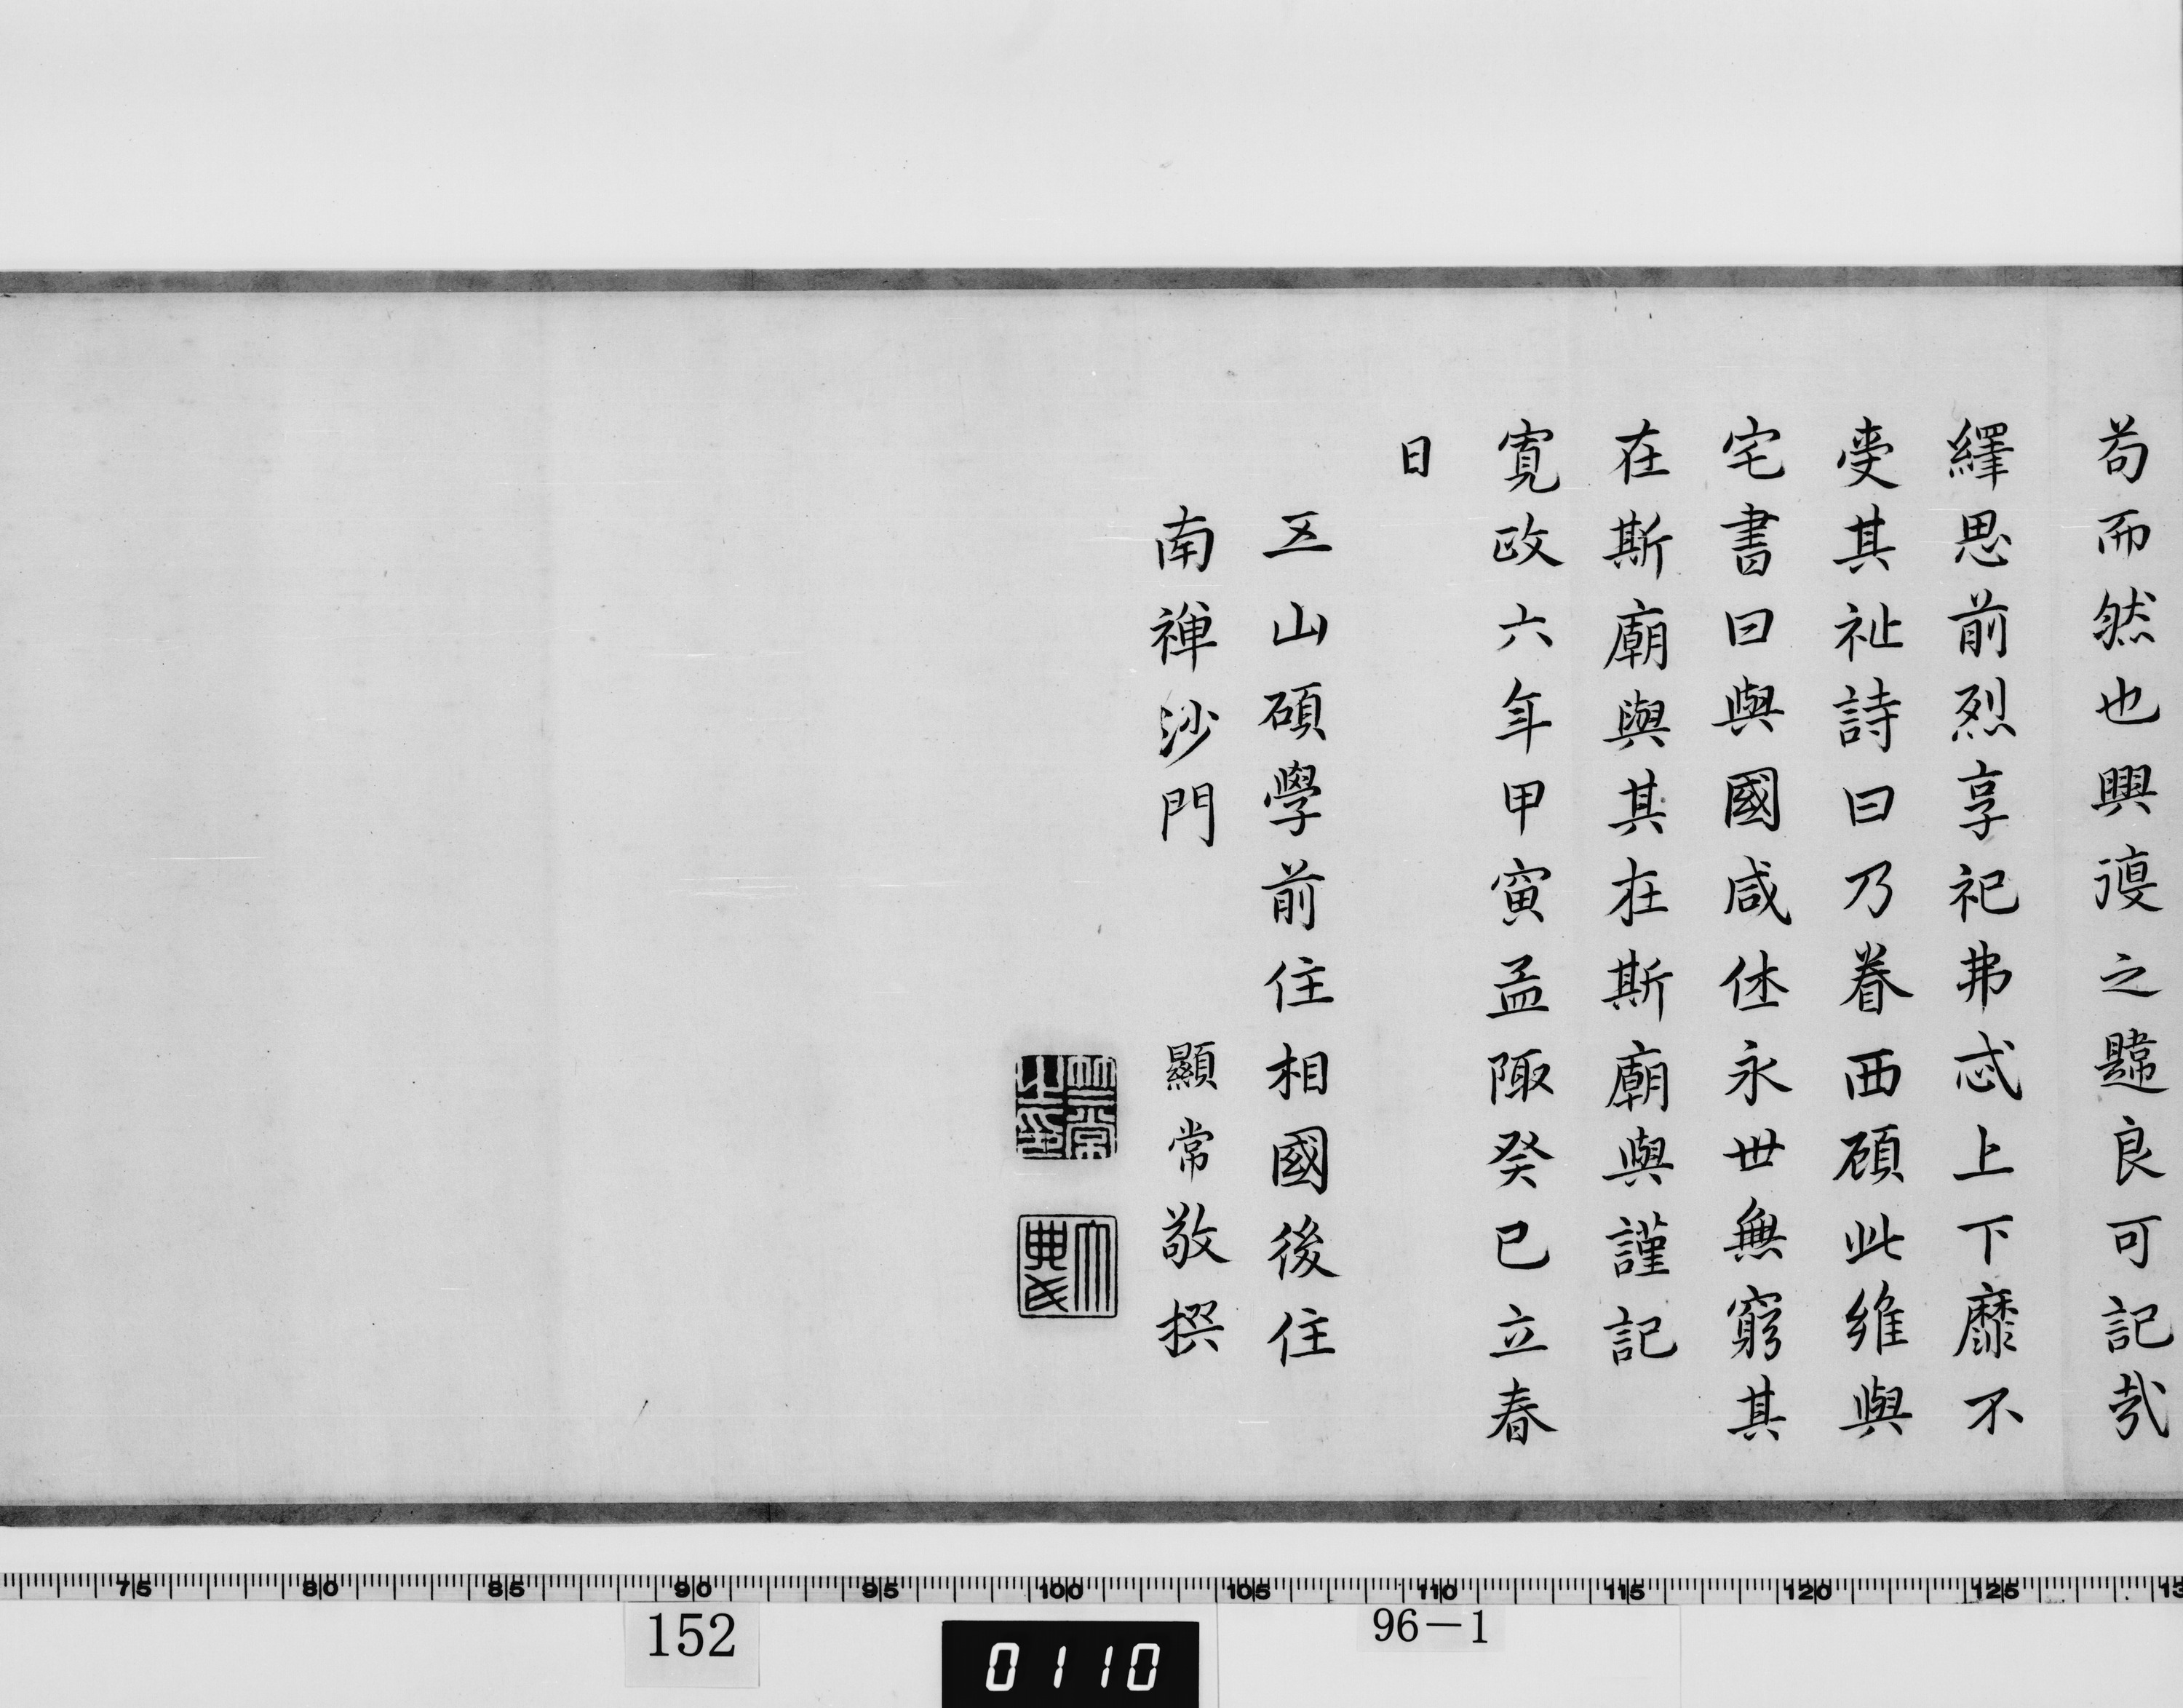 苟而然也興復之韙良可記哉
繹思前烈享祀弗忒上下靡不
受其祉詩曰乃眷西顧此維與
宅書曰與國咸休永世無窮其
在斯廟與其在斯廟與謹記
寛政六年甲寅孟陬癸巳立春
日
五山碩學前住相國後住
南禅沙門 顯常敬撰
竺常之印
大典氏
75 80 85 90 95 100 105 110 115 120 125 13
152
0110
96-1